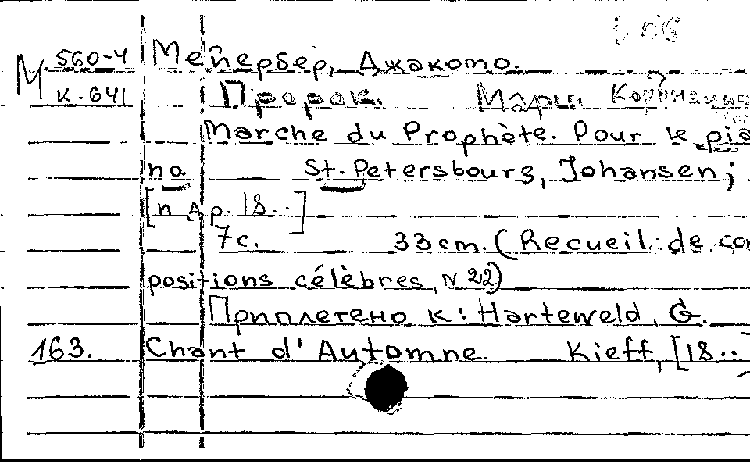 М 560-4 Мейербер, Джакомо.
К-641 Пророк. Марш
Marche du Prophète. Pour le pia
no St.-Petersbourg, Johansen;
[n. д. р. 18..]
7c. 33 cm. (Recueil de com
positions célèbres, N 22)
Приплетено к: Harteveld, G.
163. Chant d'Automne. Kieff, [18..